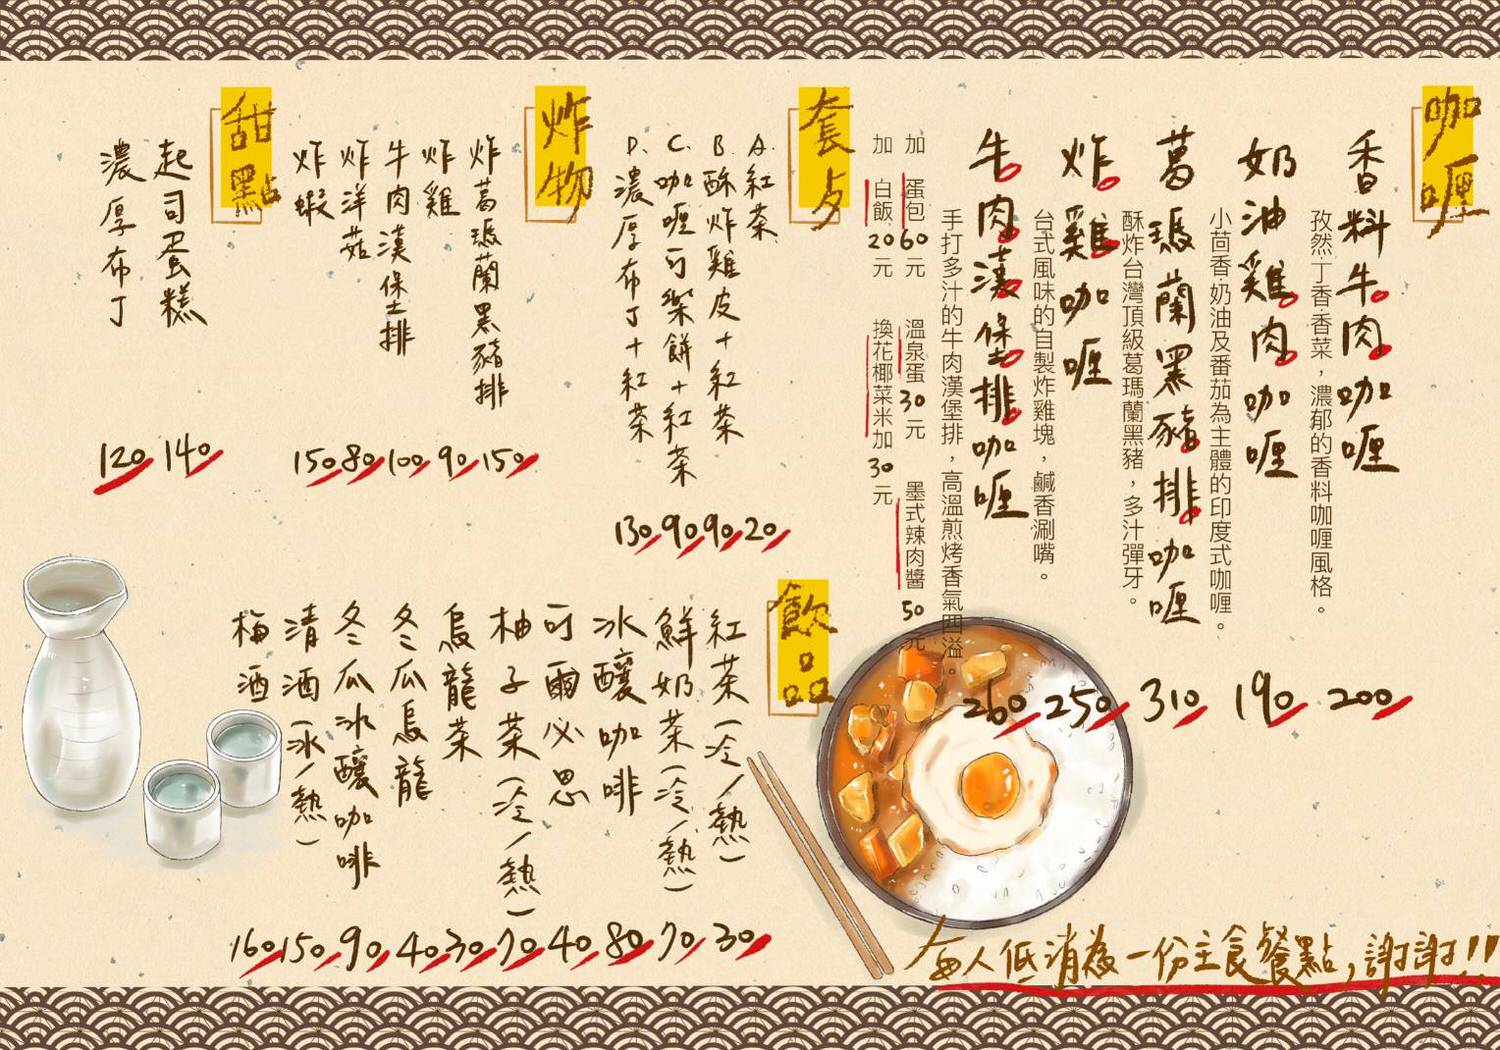 咖喱
香料牛肉咖喱
200
孜然丁香香菜，濃郁的香料咖喱風格。
奶油雞肉咖喱
190
小茴香奶油及番茄為主體的印度式咖喱。
葛瑪蘭黑豬排咖喱
310
酥炸台灣頂級葛瑪蘭黑豬，多汁彈牙。
炸雞咖喱
250
台式風味的自製炸雞塊，鹹香涮嘴。
牛肉漢堡排咖喱
260
手打多汁的牛肉漢堡排，高溫煎烤香氣四溢。
加 蛋包60元 溫泉蛋30元 墨式辣肉醬50元
加 白飯20元 換花椰菜米加30元
套餐
A.紅茶
20
B.酥炸雞皮+紅茶
90
C.咖喱可樂餅+紅茶
90
D.濃厚布丁+紅茶
130
炸物
炸葛瑪蘭黑豬排
150
炸雞
90
牛肉漢堡排
100
炸洋菇
80
炸蝦
150
甜點
起司蛋糕
140
濃厚布丁
120
飲品
紅茶(冷/熱)
30
鮮奶茶(冷/熱)
70
冰釀咖啡
80
可爾必思
40
柚子茶(冷/熱)
70
烏龍茶
30
冬瓜烏龍
40
冬瓜冰釀咖啡
90
清酒(冰/熱)
150
梅酒
160
每人低消為一份主食餐點,謝謝!!